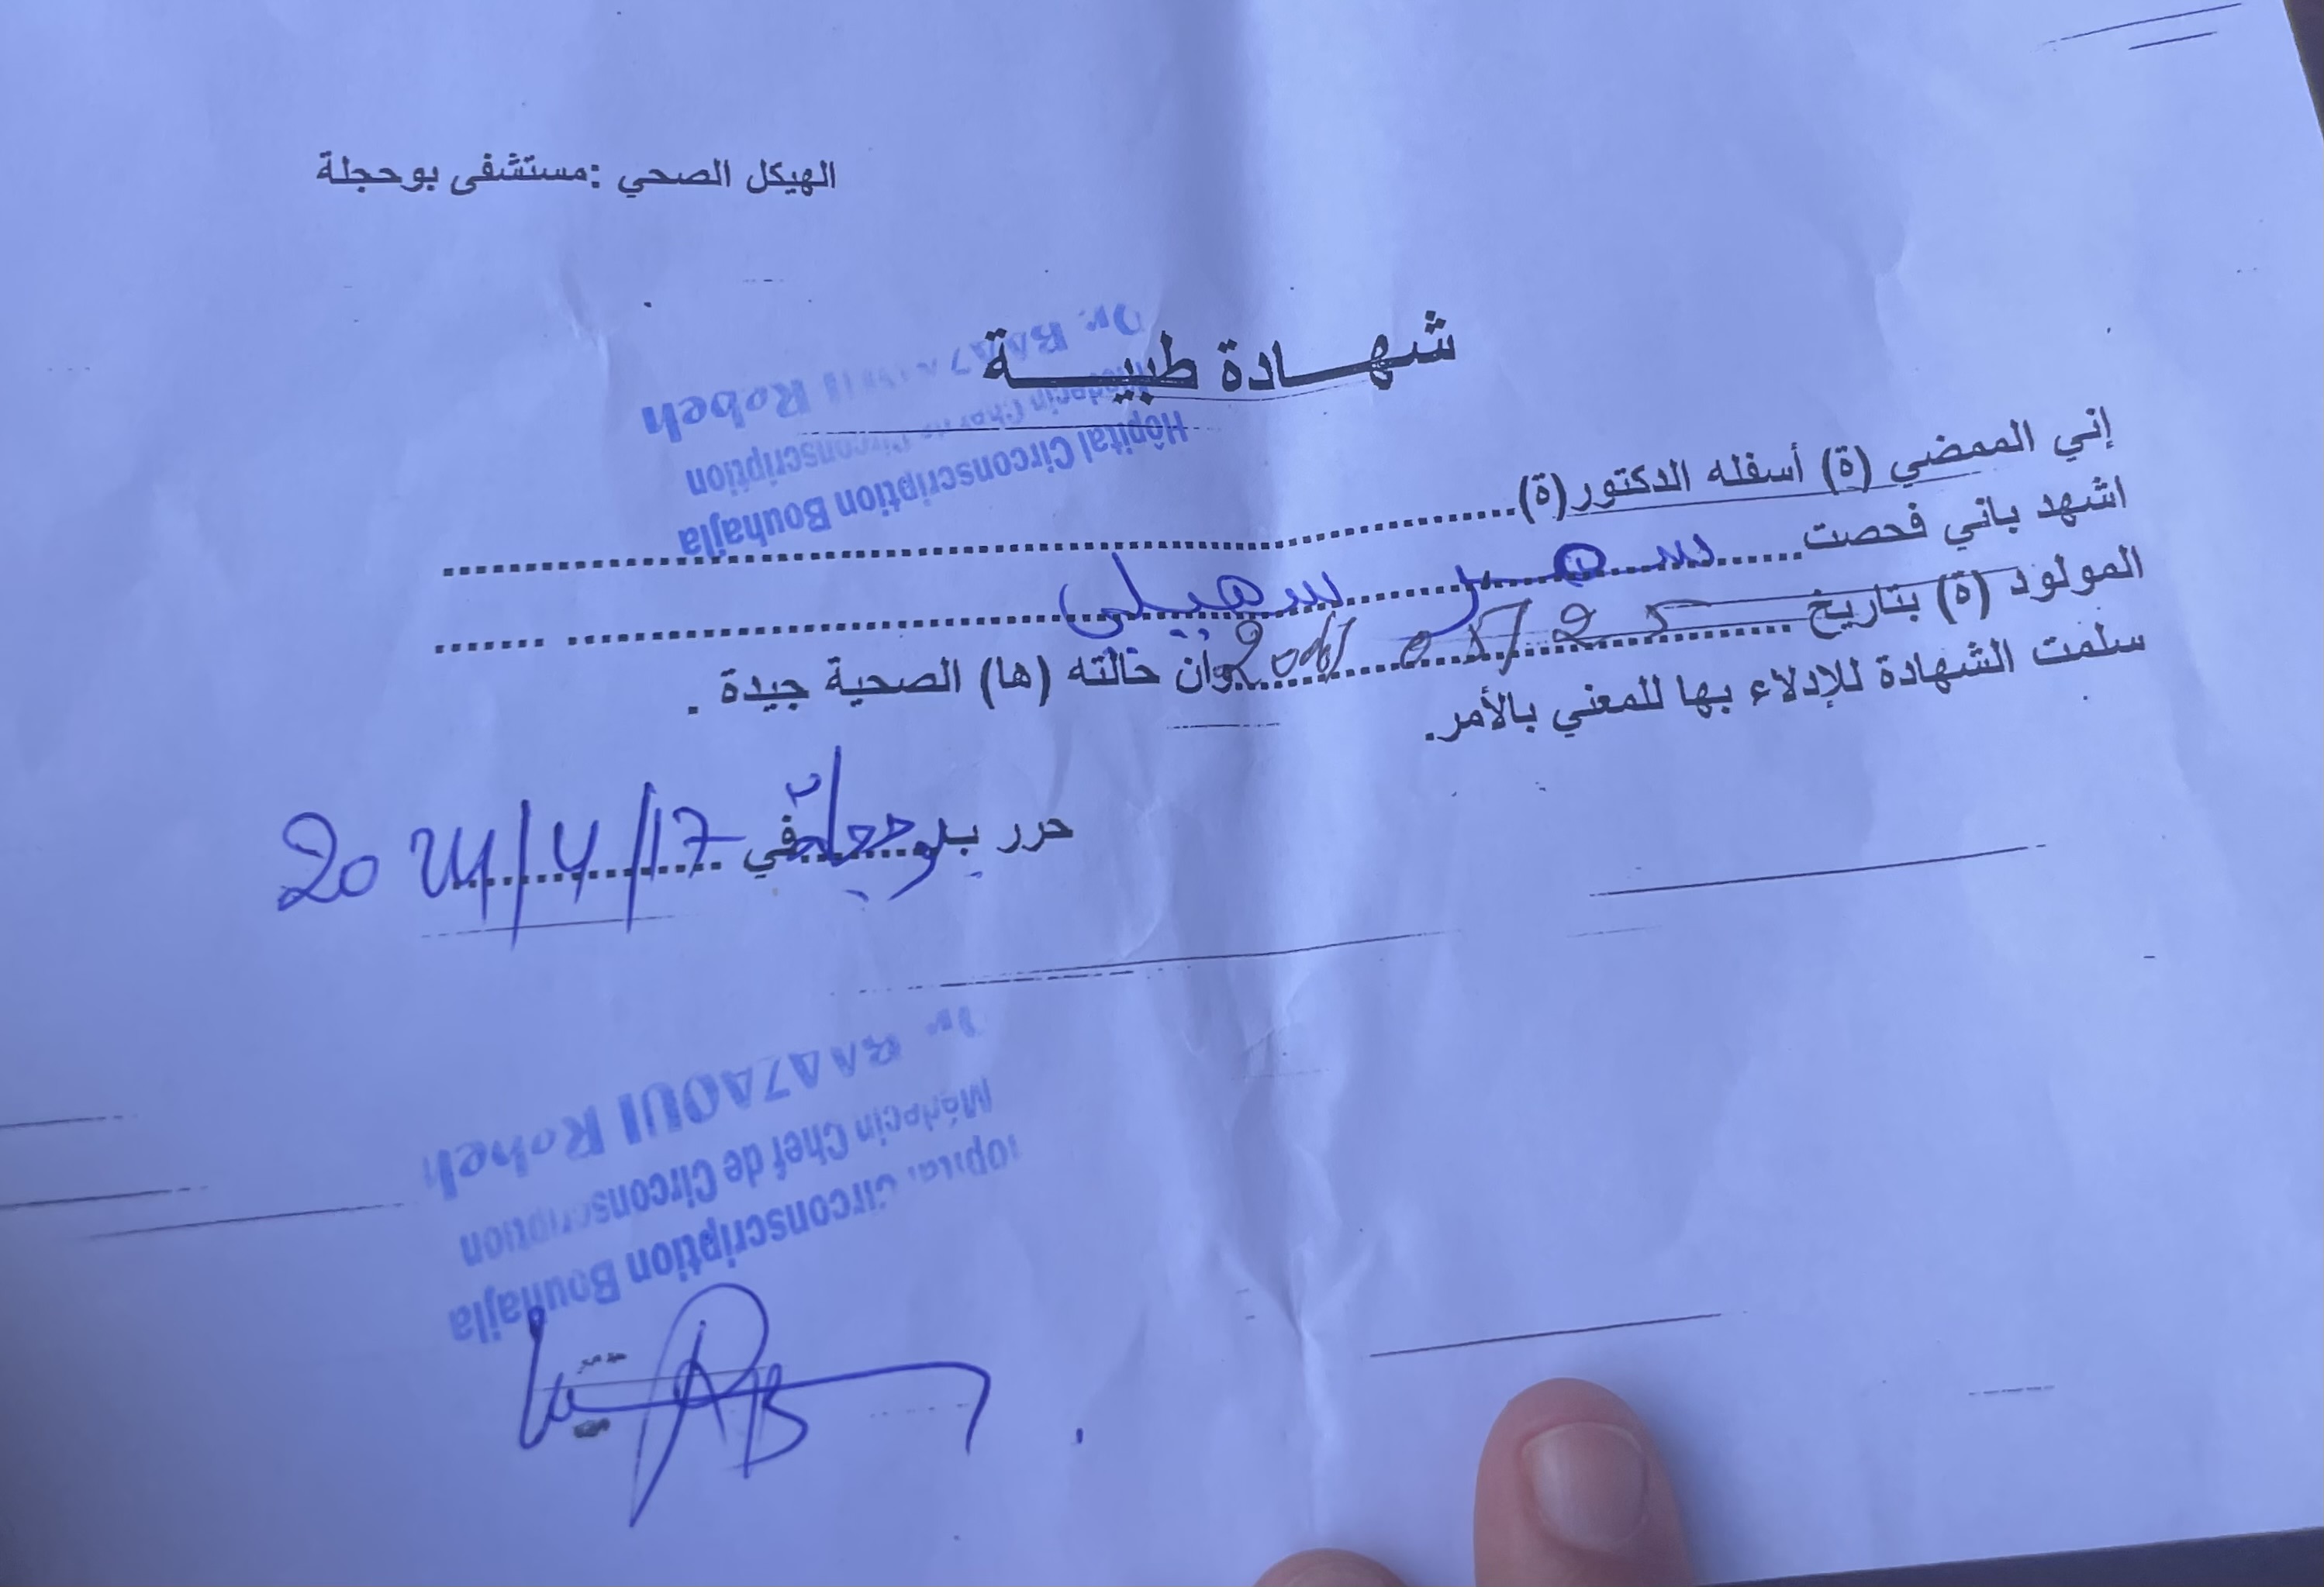 الهيكل الصحي :مستشفى بوحجلة
شهـــادة طبيـــة
Dr. Robeh
Médecin Circonscription
Hôpital Circonscription Bouhajla
إني الممضي (ة) أسفله الدكتور(ة)
اشهد باني فحصت سهيلي
المولود (ة) بتاريخ وأن حالته (ها) الصحية جيدة .
سلمت الشهادة للإدلاء بها للمعني بالأمر.
حرر ببوحجلة في 17/4/2024
Dr. BAAZAOUI Robeh
Médecin Chef de Circonscription
Hôpital Circonscription Bouhajla